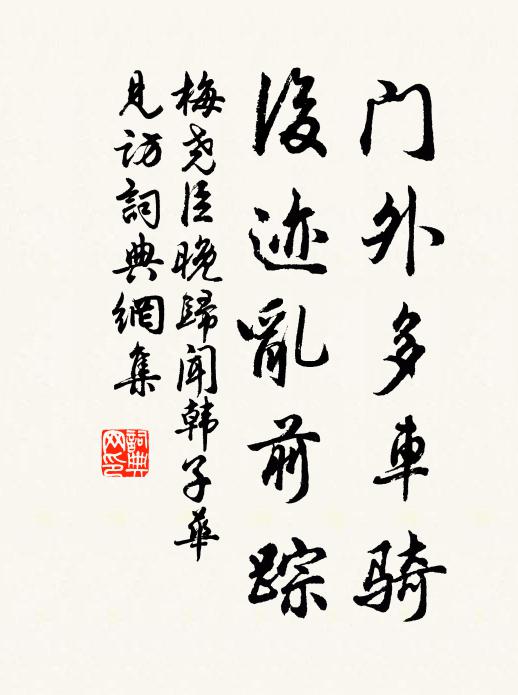 门外多車骑
後迹亂前踪
梅尧臣晚歸闻韩子華
見访詞典網集
詞典网印